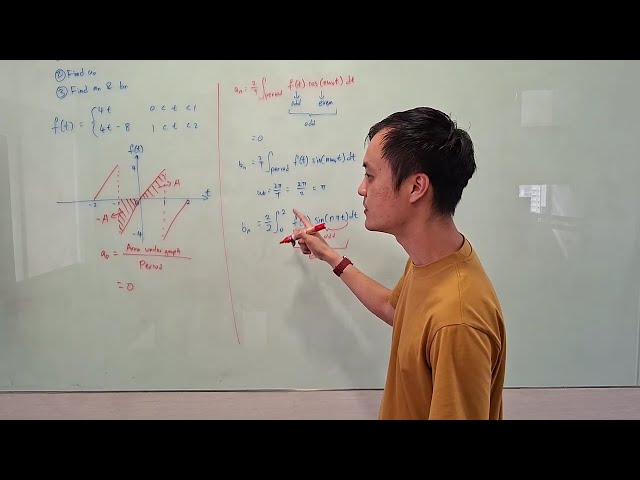 ② Find a₀
③ Find an & bn
f(t) = { 4t 0 < t < 1
4t - 8 1 < t < 2
f(t)
4
A
t
-2
1
2
-A
-4
a₀ = Area under graph / Period
= 0
aₙ = 2/T ∫period f(t) cos(nω₀t) dt
odd even
odd
= 0
bₙ = 2/T ∫period f(t) sin(nω₀t) dt
ω₀ = 2π/T = 2π/2 = π
bₙ = 2/2 ∫₀² sin(nπt) dt
odd